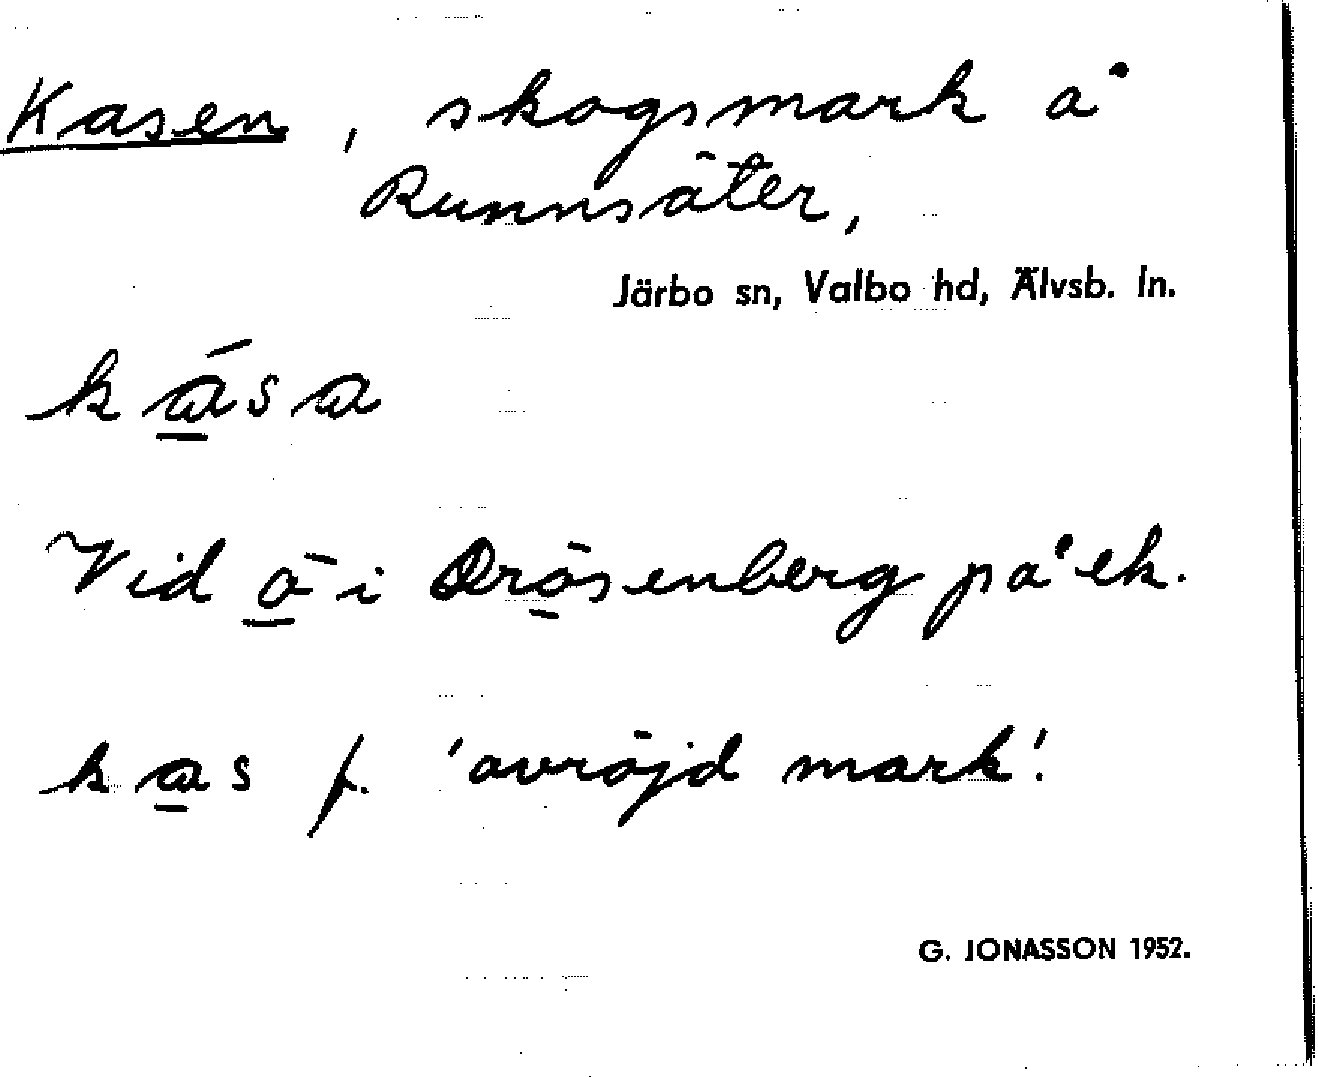 Kasen, skogsmark å
Runnsäter,
Järbo sn, Valbo hd, Älvsb. ln.
ká̲sa
Vid ö̲ i Drö̲senberg på ek.
ka̲s f. 'avröjd mark'.
G. JONASSON 1952.